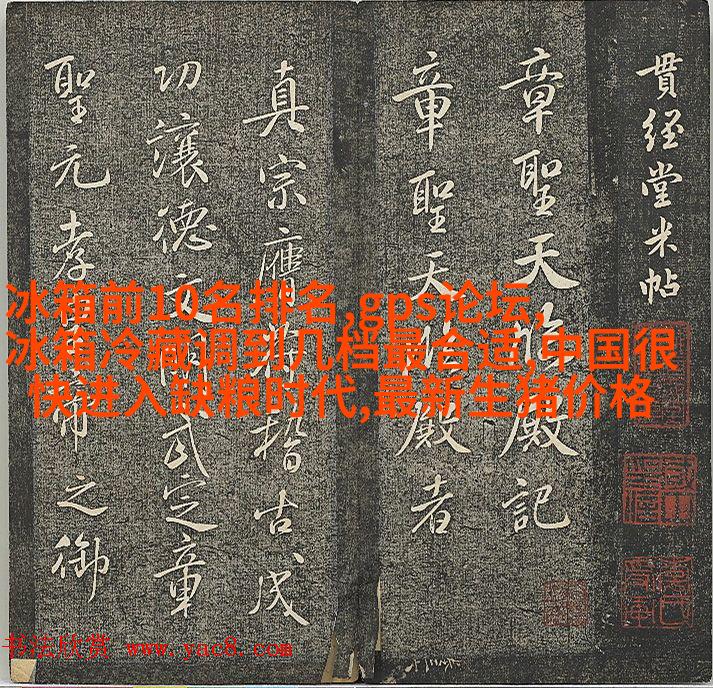 貫經堂米帖
章聖天臨殿記
章聖天臨殿者
真宗稽古成
功讓德文武定章
聖元孝皇帝之御
冰箱前10名排名,gps论坛,
冰箱冷藏调到几档最合适,中国很
快进入缺粮时代,最新生猪价格
书法欣赏 www.yac8.com